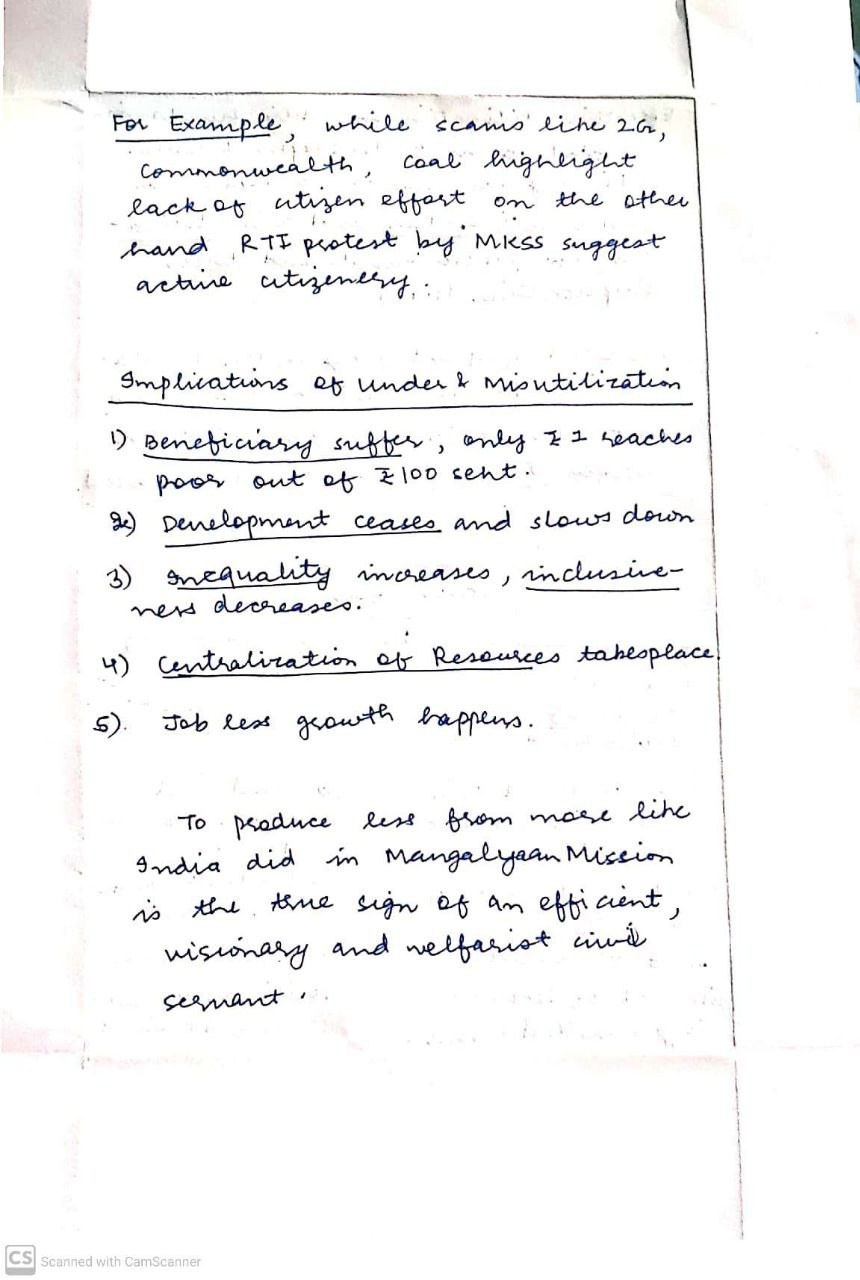 For Example, while scams like 2G,
Commonwealth, Coal highlight
lack of citizen effort on the other
hand RTI protest by MKSS suggest
active citizenery.
Implications of under & Misutilization
1) Beneficiary suffer, only ₹ 1 reaches
poor out of ₹ 100 sent.
2) Development ceases and slows down
3) Inequality increases, inclusive-
ness decreases.
4) Centralization of Resources takesplace
5). Job less growth happens.
To produce less from more like
India did in Mangalyaan Mission
is the true sign of an efficient,
visionary and welfarist civil
servant.
CS Scanned with CamScanner